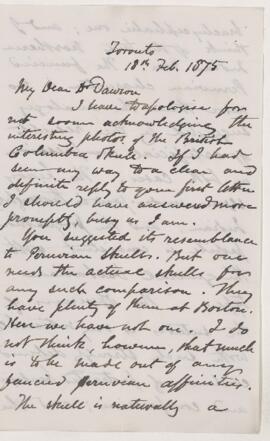 Toronto
18th Feb. 1875
My Dear Dr Dawson
I have to apologise for
not sooner acknowledging the
interesting photos of the British
Columbia Skull. If I had
seen my way to a clear and
definite reply to your first letter
I should have answered more
promptly, busy as I am.
You suggested its resemblance
to Peruvian Skulls. But one
needs the actual skulls for
any such comparison. They
have plenty of them at Boston.
Here we have not one. I do
not think, however, that much
is to be made out of any
fancied Peruvian affinities.
The skull is naturally a